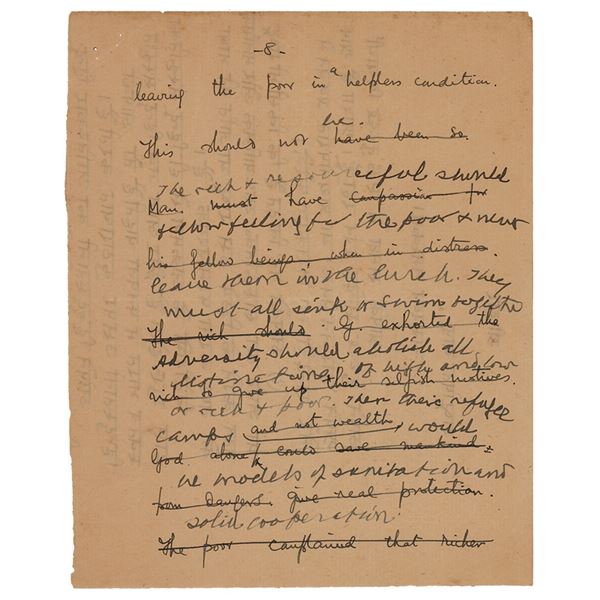 -8-
leaving the poor in a helpless condition.
be.
This should not have been so.
The rich & resourceful should
Man must have compassion for
fellow feeling for the poor & never
his fellow beings, when in distress.
leave them in the lurch. They
must all sink or swim together
The rich should G. exhorted the
Adversity should abolish all
distinctions of high and low
rich to give up their selfish motives.
or rich & poor. Then these refugee
camps and not wealth, would
God alone could save mankind
be models of sanitation and
from dangers. give real protection.
solid cooperation.
The poor complained that richer